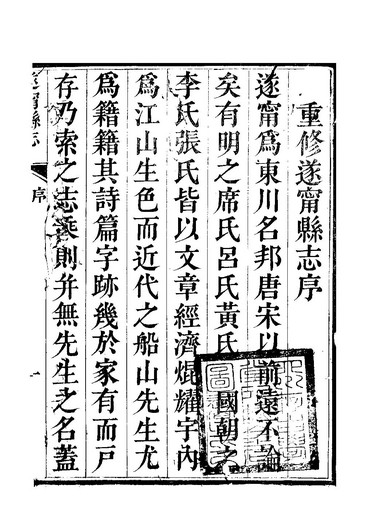 重修遂甯縣志序
遂甯爲東川名邦唐宋以前遠不論
矣有明之席氏呂氏黃氏 國朝之
李氏張氏皆以文章經濟焜耀宇內
爲江山生色而近代之船山先生尤
爲籍籍其詩篇字跡幾於家有而戶
存乃索之志乘則幷無先生之名蓋
遂甯縣志
序